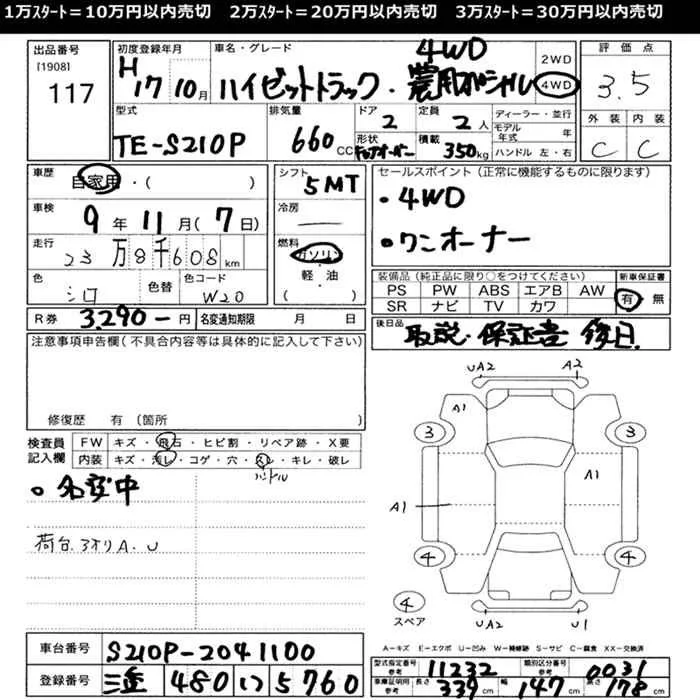 1万ｽﾀｰﾄ＝10万円以内売切　2万ｽﾀｰﾄ＝20万円以内売切　3万ｽﾀｰﾄ＝30万円以内売切
出品番号
[1908]
117
初度登録年月
H17 10月
車名・グレード
4WD
ハイゼットトラック・農用スペシャル
2WD
4WD
評価点
3.5
外装 内装
C C
型式
TE-S210P
排気量
660CC
ドア
2
形状
定員
2人
積載
350kg
ディーラー・並行
モデル年式 年
ハンドル 左・右
車歴
自家用・( )
車検
9年11月(7日)
走行
23万8千608km
色
シロ
色替
色コード
W20
シフト
5MT
冷房
燃料
ガソリン
軽・油
( )
セールスポイント（正常に機能するものに限ります）
・4WD
・ワンオーナー
装備品（純正品に限り○をつけてください） 新車保証書
PS PW ABS エアB AW 有 無
SR ナビ TV カワ
R券 3290-円 名変通知期限 月 日
後日品
取説・保証書 後日.
注意事項申告欄（不具合内容等は具体的に記入して下さい）
修復歴 有（箇所 ）
検査員記入欄
FW キズ・飛石・ヒビ割・リペア跡・X要
内装 キズ・汚レ・コゲ・穴・スレ・キレ・破レ
ハンドル
・名変中
荷台.3オリA.U
UA2 A2
A1
3 3
A1
A1
4 4
4
スペア
UA2 U1
A－キズ E－エクボ U－凹み W－補修跡 S－サビ C－腐食 XX－交換済
車台番号 S210P-2041100
登録番号 三重 480 い 5760
型式指定番号 参考 11232 類別区分番号 参考 0031
車庫証明用 参考 長さ 339cm 幅 147cm 高さ 178cm